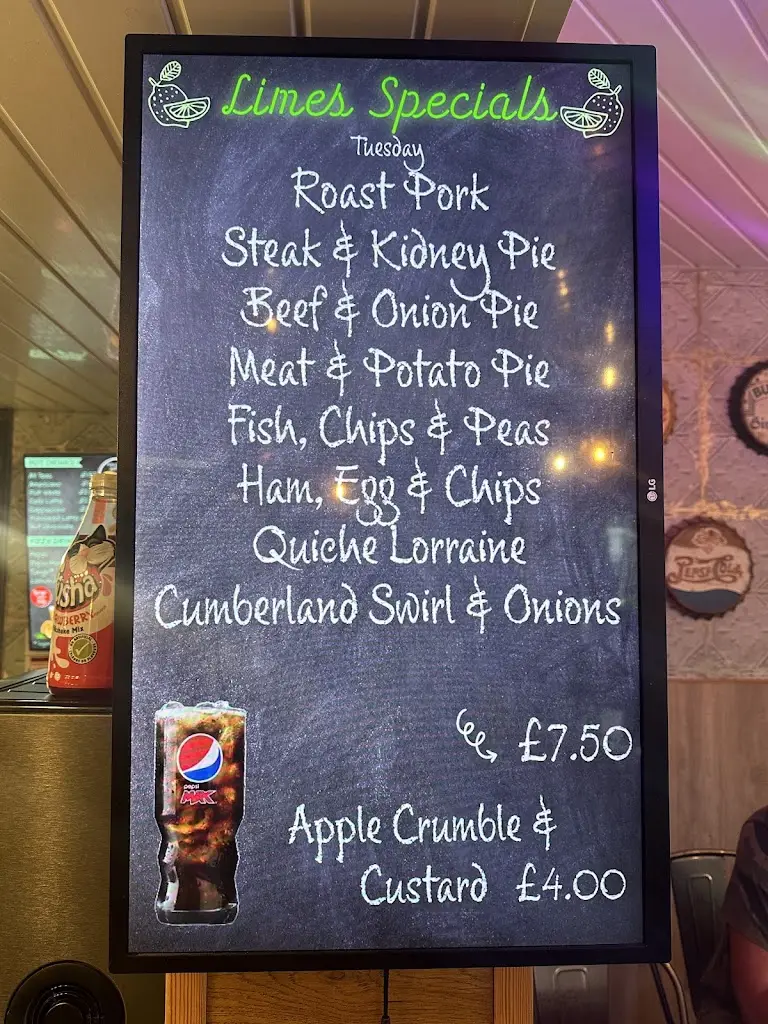 Limes Specials
Tuesday
Roast Pork
Steak & Kidney Pie
Beef & Onion Pie
Meat & Potato Pie
Fish, Chips & Peas
Ham, Egg & Chips
Quiche Lorraine
Cumberland Swirl & Onions
£7.50
Apple Crumble &
Custard £4.00
pepsi
MAX
LG
PEPSI-COLA